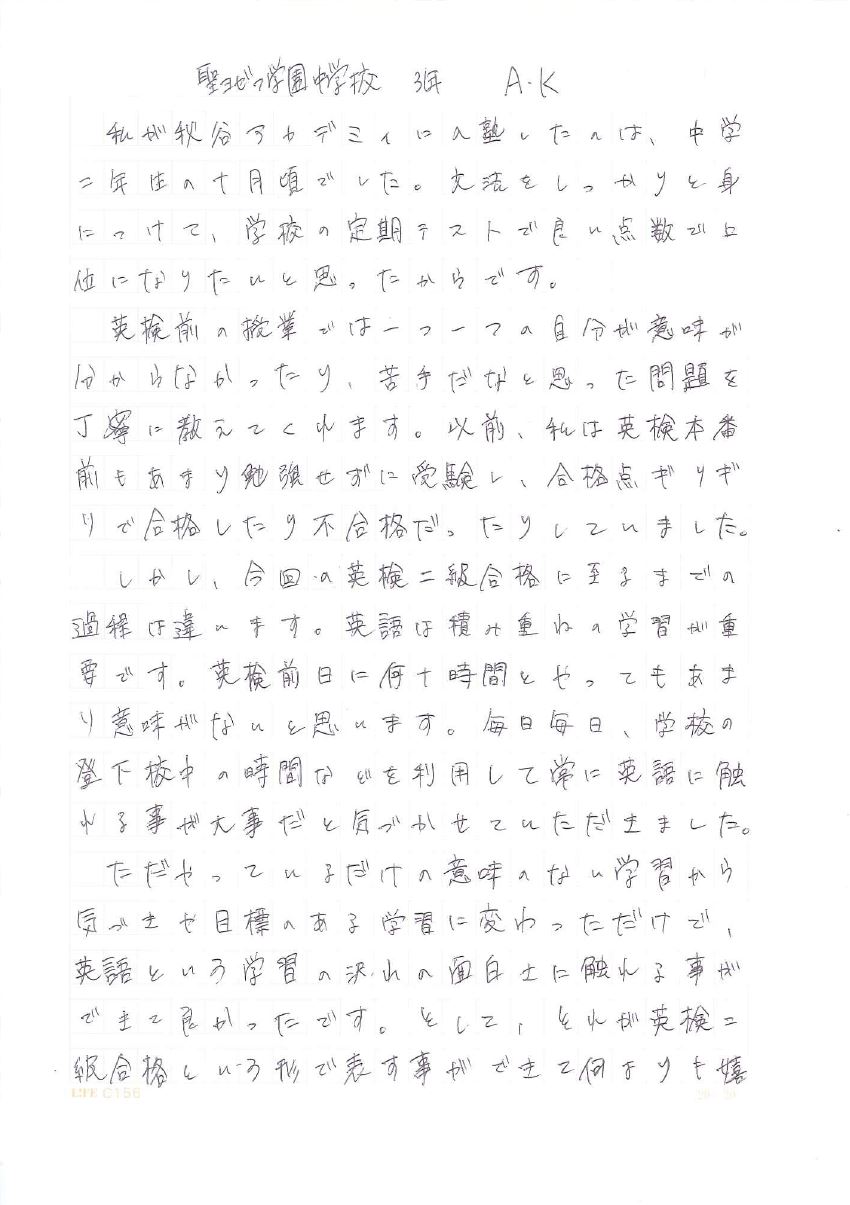 聖ヨゼフ学園中学校 3年 A・K
私が秋谷アカデミィに入塾したのは、中学
二年生の十月頃でした。文法をしっかりと身
につけて、学校の定期テストで良い点数で上
位になりたいと思ったからです。
英検前の授業では一つ一つの自分が意味が
分からなかったり、苦手だなと思った問題を
丁寧に教えてくれます。以前、私は英検本番
前もあまり勉強せずに受験し、合格点ギリギ
リで合格したり不合格だったりしていました。
しかし、今回の英検二級合格に至るまでの
過程は違います。英語は積み重ねの学習が重
要です。英検前日に何十時間とやってもあま
り意味がないと思います。毎日毎日、学校の
登下校中の時間などを利用して常に英語に触
れる事が大事だと気づかせていただきました。
ただやっているだけの意味のない学習から
気づきや目標のある学習に変わっただけで、
英語という学習の流れの面白さに触れる事が
できて良かったです。そして、それが英検二
級合格という形で表す事ができて何よりも嬉
LIFE C156
20 20